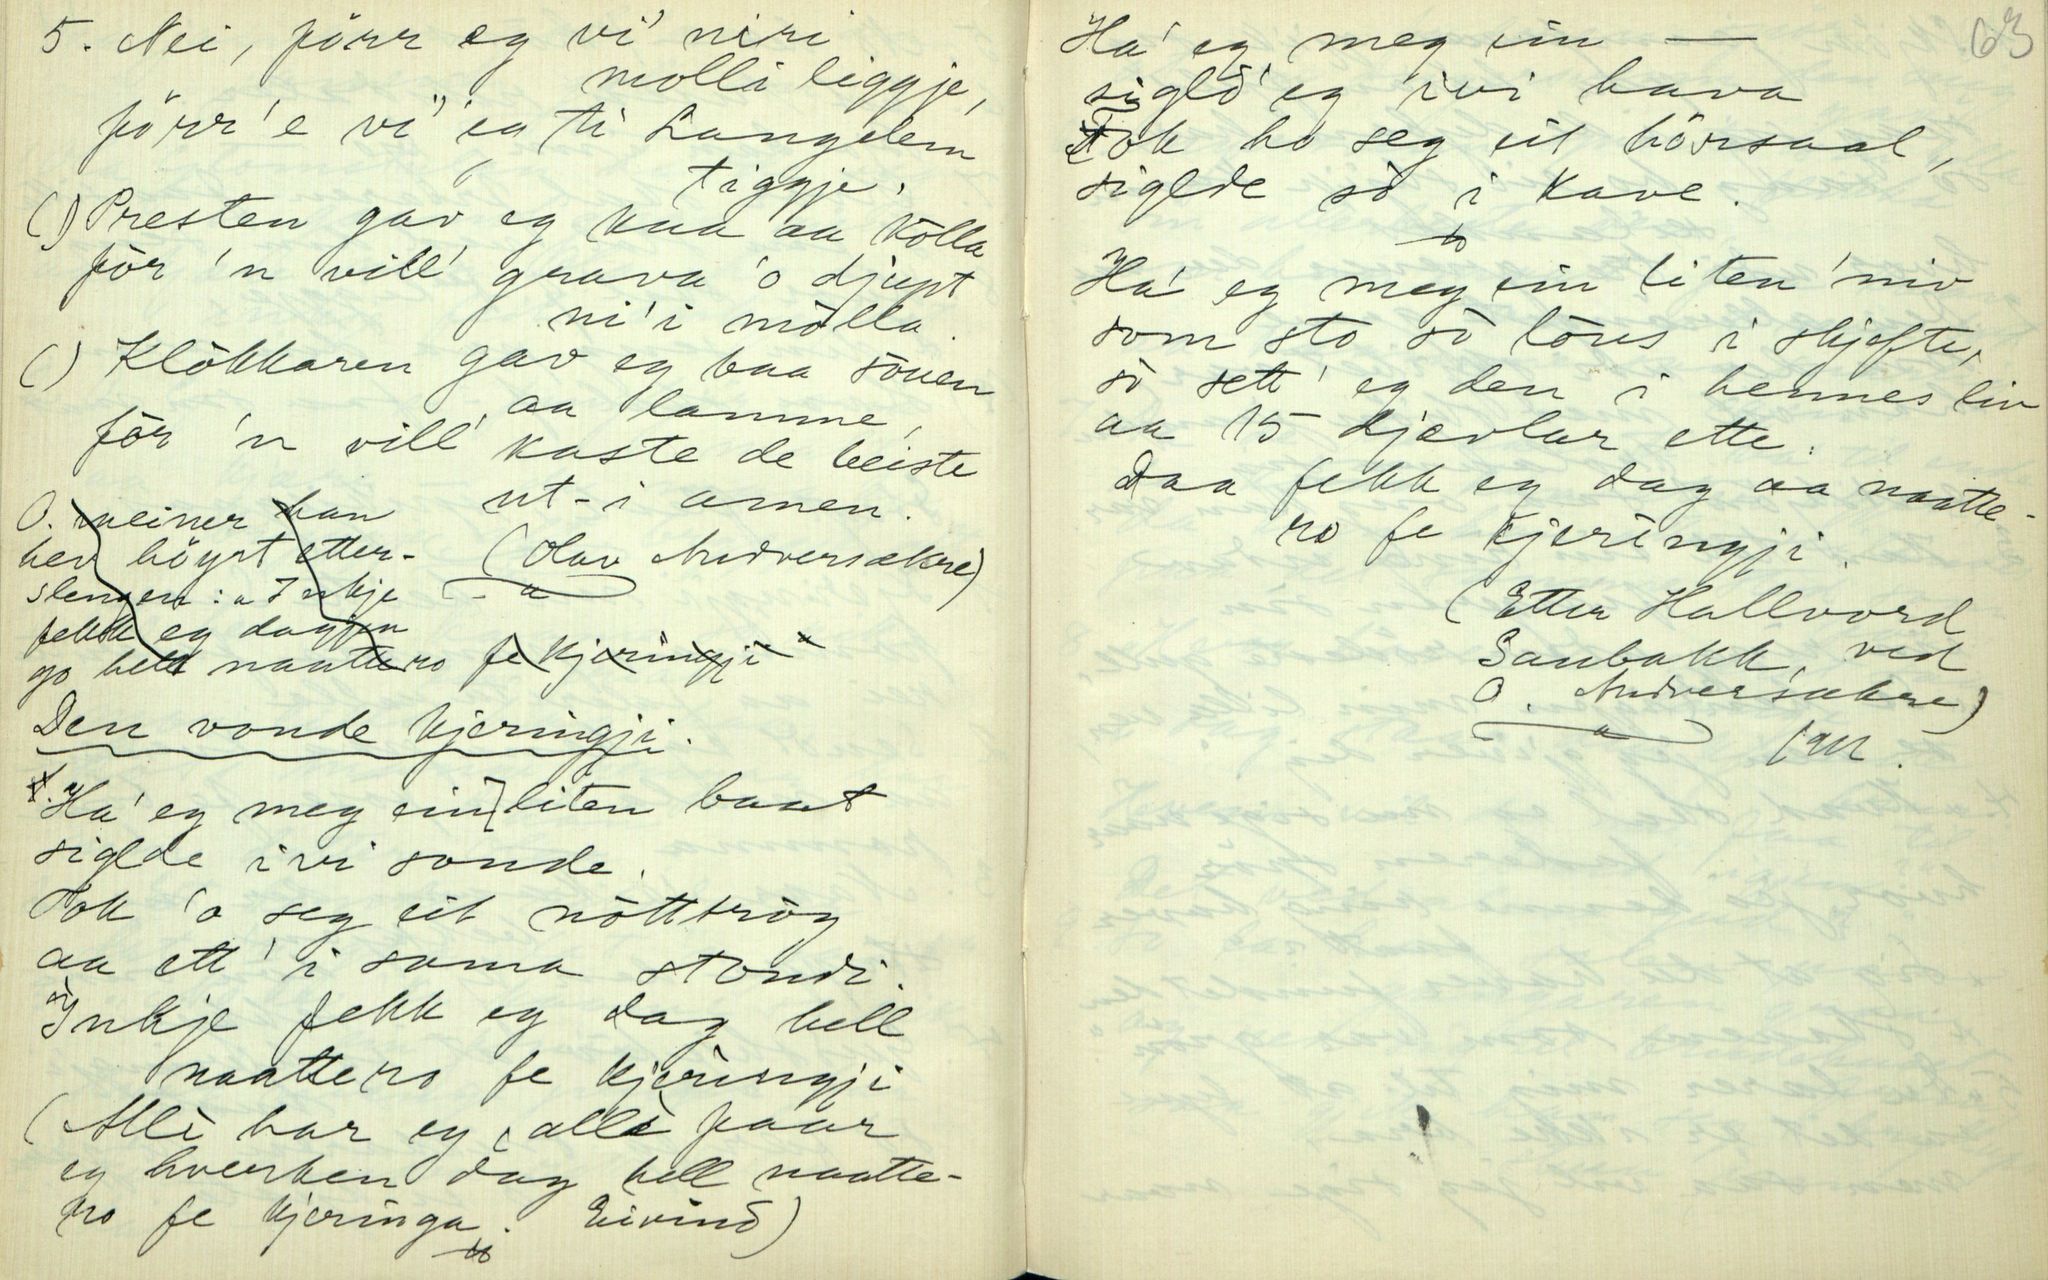 5. Nei, förr eg vi' niri
molli liggje,
förr'e vi' eg ti Langelem
tiggje.
() Presten gav eg kua aa kölla
för 'n vill' grava 'o djupt
ni' i mölla.
() Klökkaren gav eg baa söuen
aa lamme,
för 'n vill' kaste de beiste
ut-i amen.
(Olav Midversækre)
O. meiner han
hev höyrt etter-
slengen: "Inkje
fekk eg dagjen
go hell naattero fe kjeringji"
Den vonde kjeringji.
1. Ha' eg meg ein] liten baat
siglde ivi sonde.
Tok 'o seg eit nöttrög
aa ett' i sama stondi.
Inkje fekk eg dag hell
naattero fe kjeringji
(Alli har eg, alli faar
eg hverken dag hell naatte-
ro fe kjeringa. Eivind)
63
Ha' eg meg ein —
sigld' eg ivi hava
Tok ho seg eit hörsaal,
siglde sò i kave.
Ha' eg meg ein liten 'niv
som sto sò löus i skjefte,
sò sett' eg den i hennes liv
aa 15 djevlar ette.
Daa fekk eg dag aa naatte-
ro fe kjeringji.
(Etter Hallvord
Sanbakk, ved
O. Midversækre)
1911.